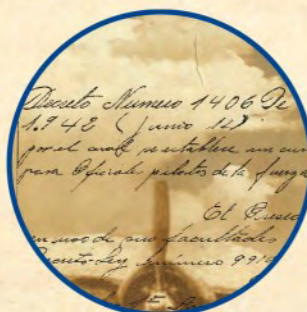 Decreto Numero 1406 De
1.942 (Junio 12)
por el cual se establece un cur
para Oficiales pilotos de la fuerza
El Presid
en uso de sus facultades
Decreto-Ley número 991